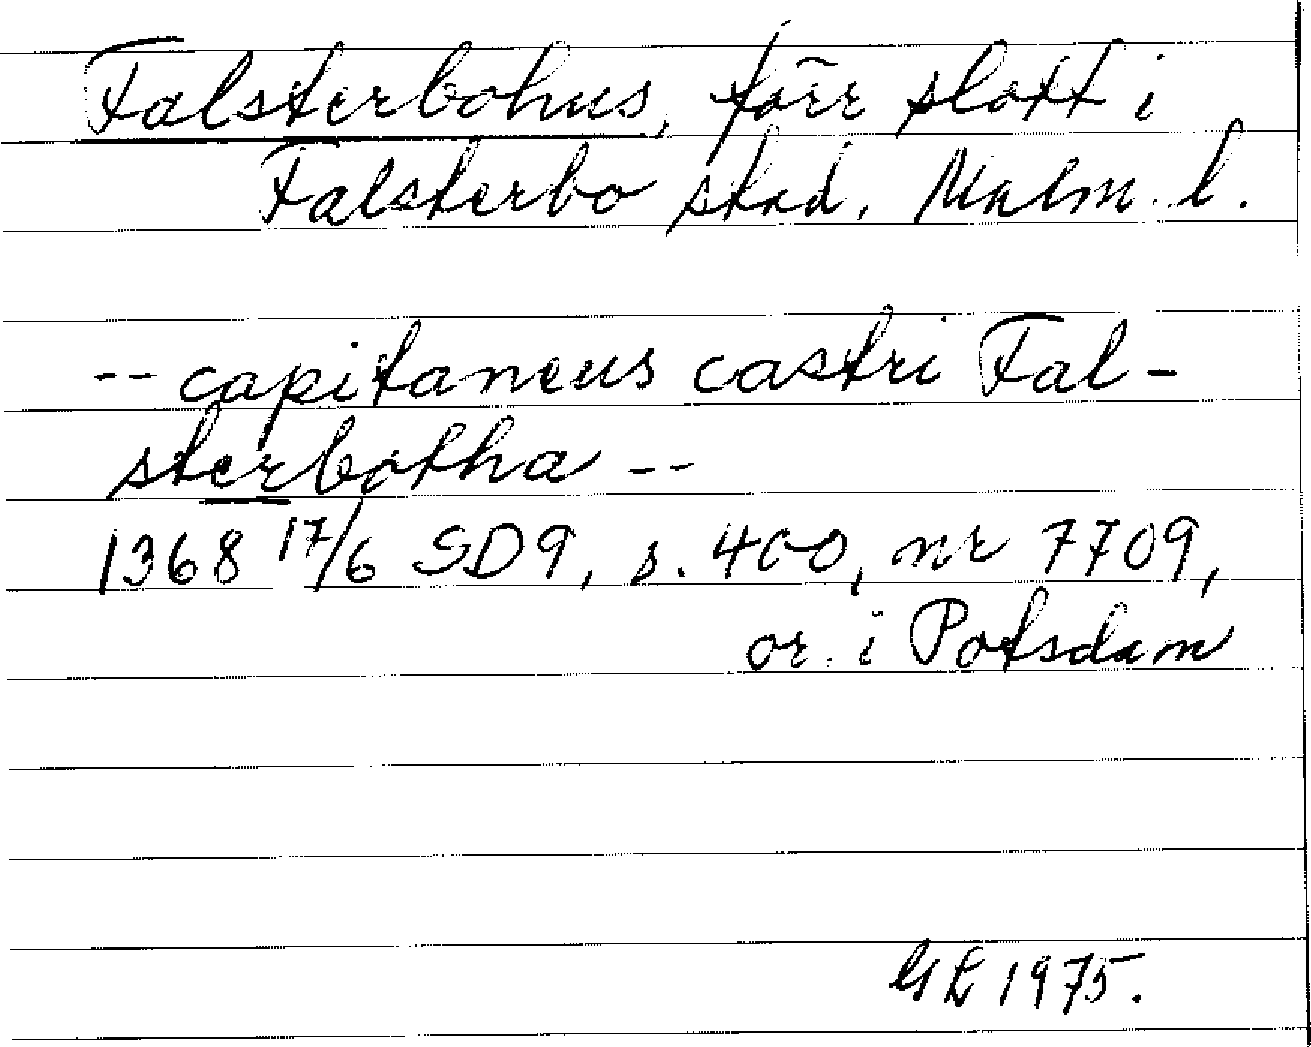 Falsterbohus, förr slott i
Falsterbo stad, Malm. l.
-- capitaneus castri Fal-
sterbotha --
1368 17/6 SD9, s. 400, nr 7709,
or. i Potsdam
GL 1975.